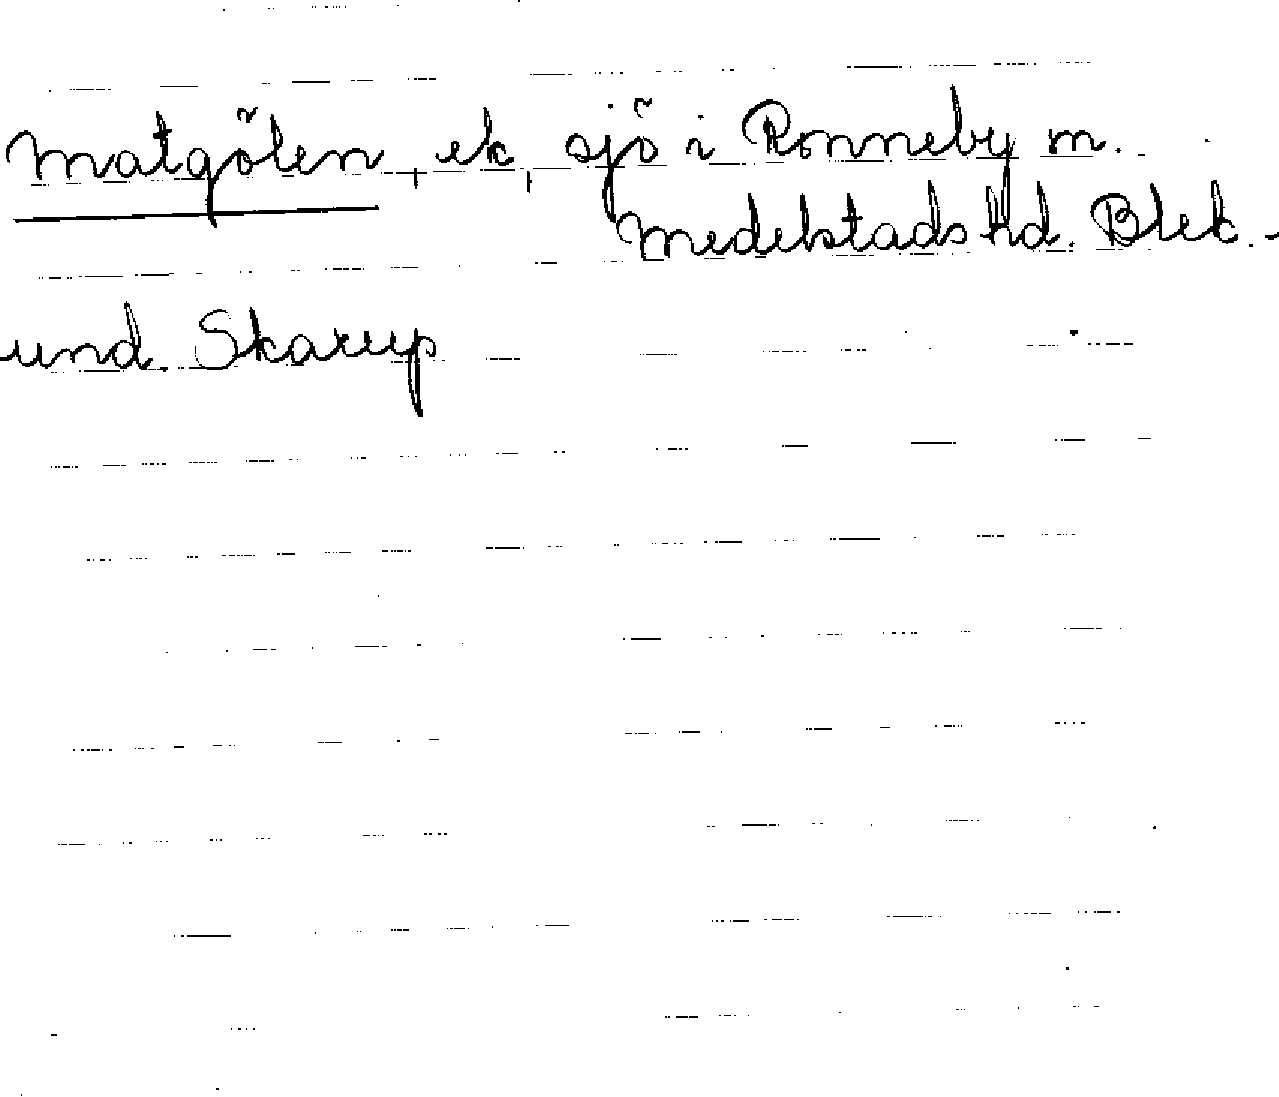 Matgölen, ek, sjö i Ronneby m.
Medelstads hd. Blek.-
und. Skarup